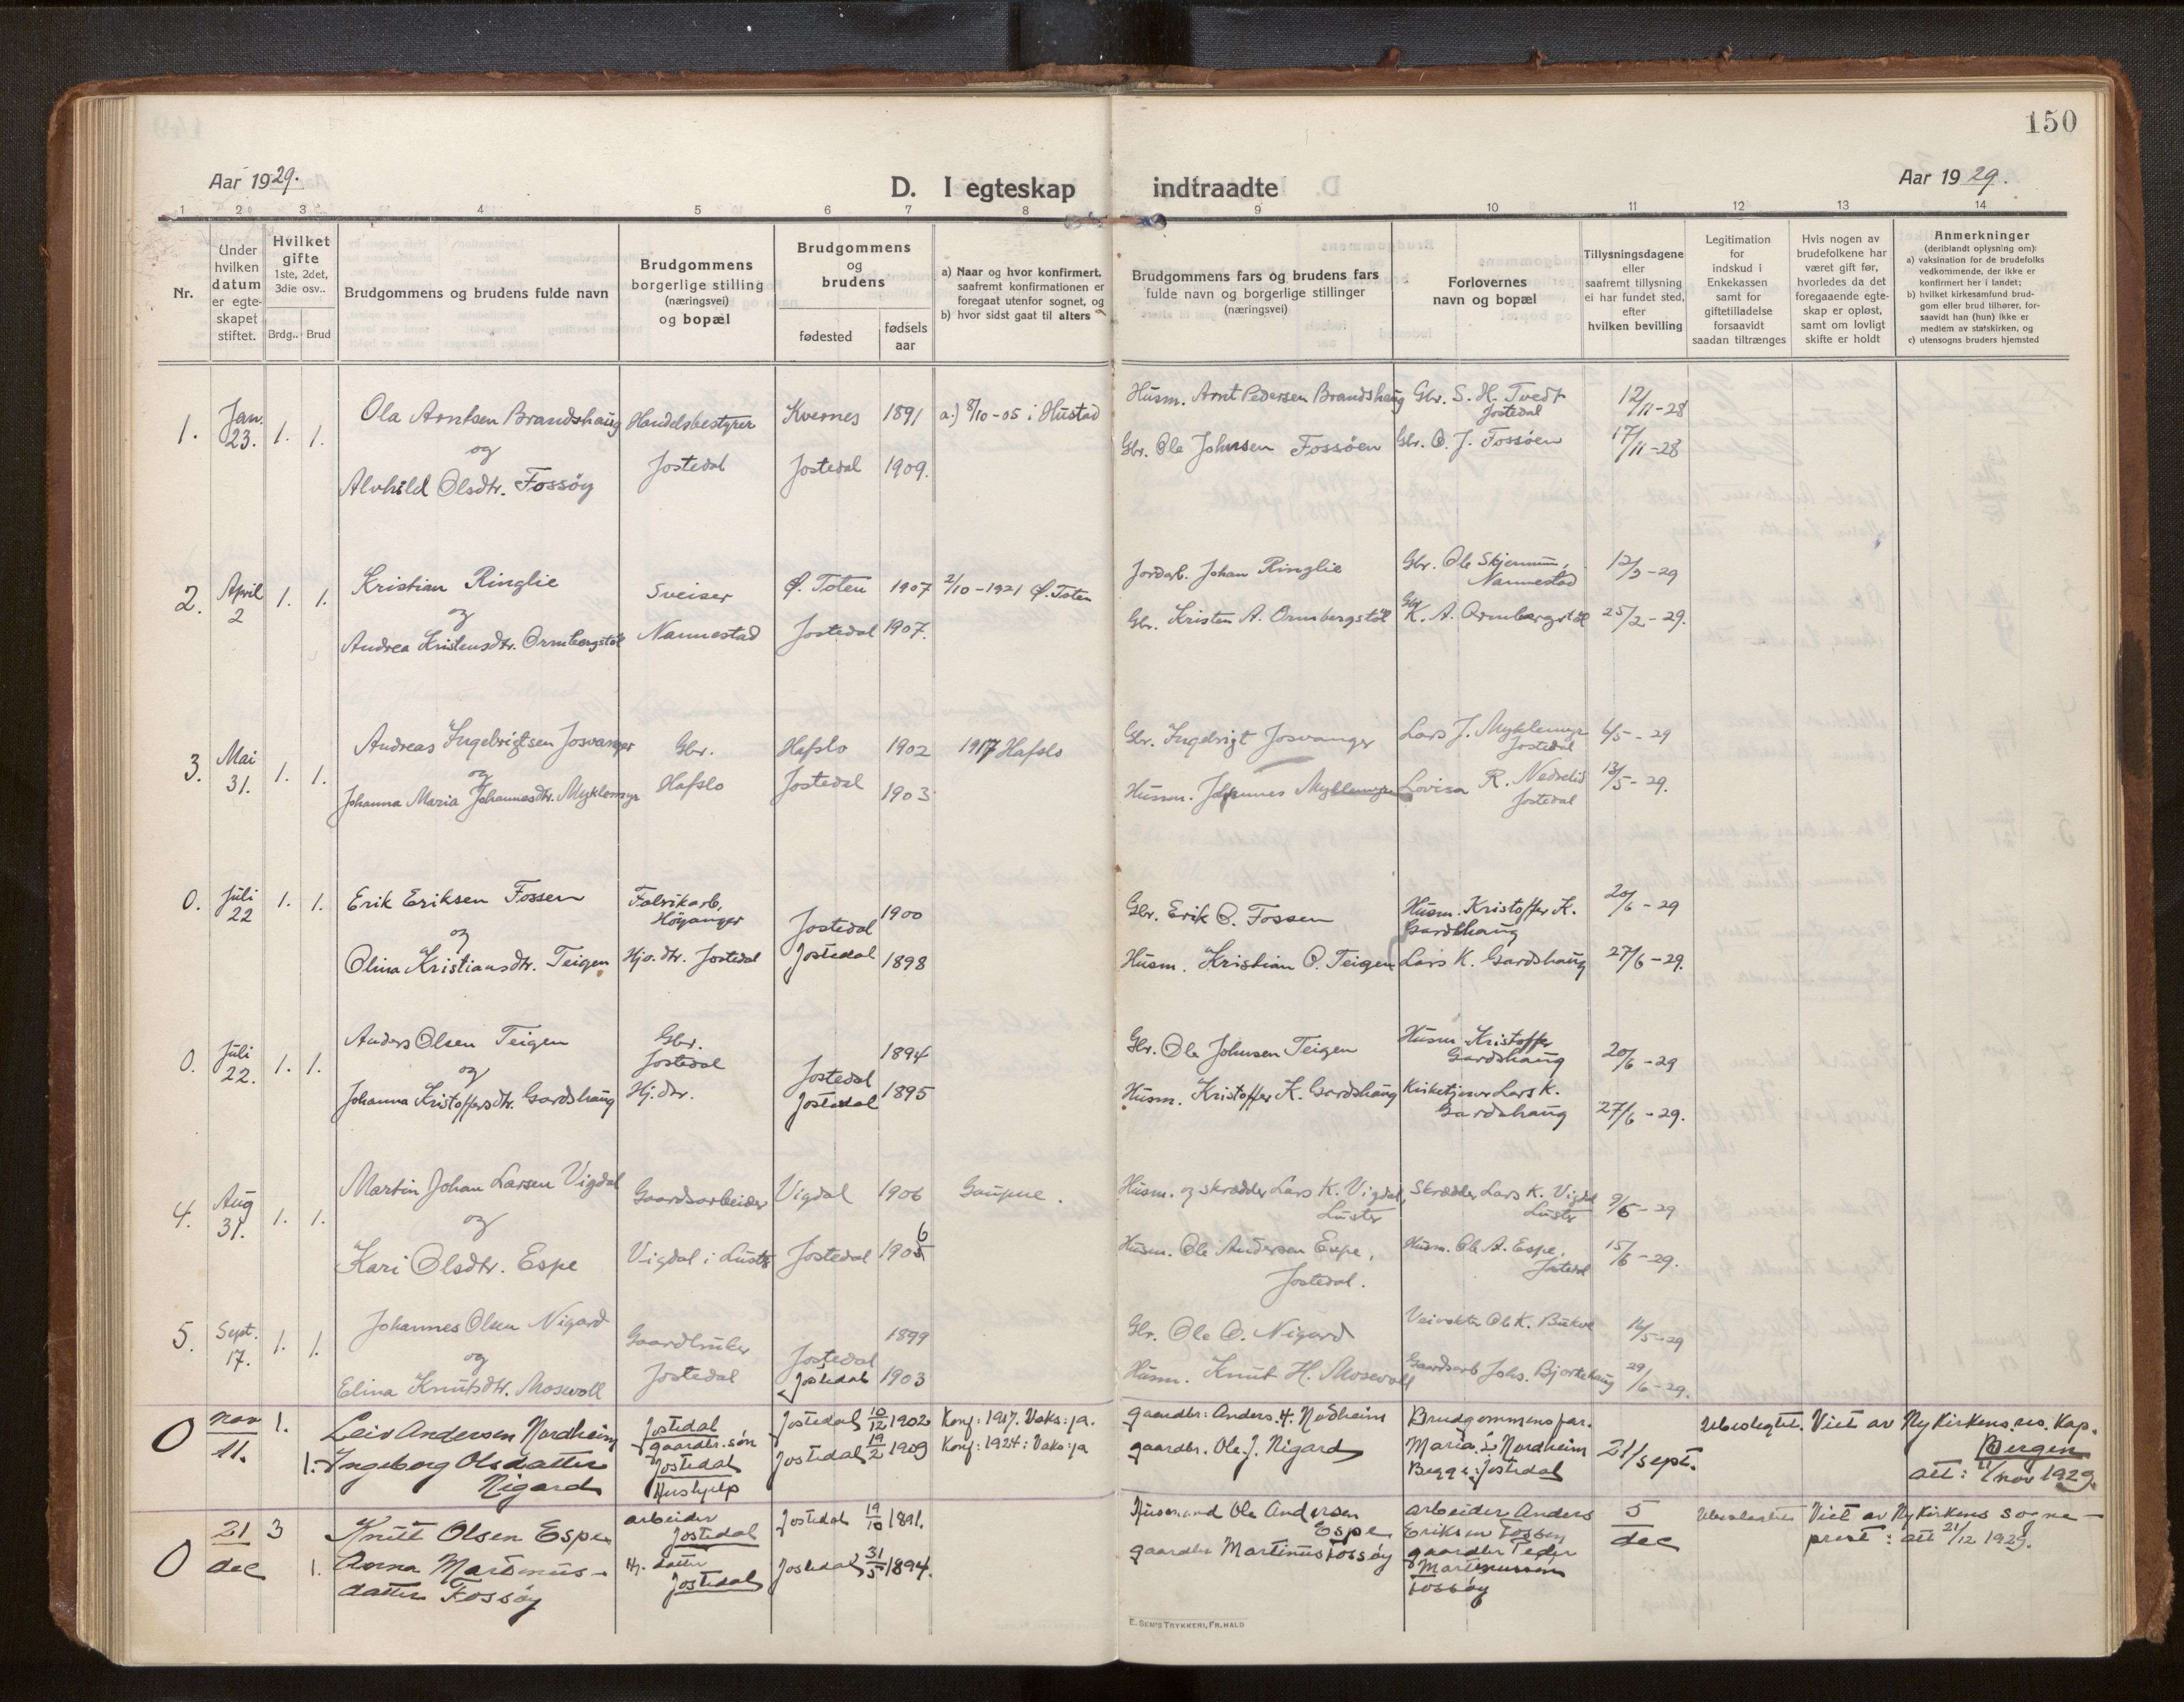 150
Aar 1929.
D. I egteskap indtraadte
Aar 1929.
1 2 3 4 5 6 7 8 9 10 11 12 13 14
Nr.
Under hvilken datum er egteskapet stiftet.
Hvilket gifte
1ste, 2det, 3die osv..
Brdg.. Brud
Brudgommens og brudens fulde navn
Brudgommens borgerlige stilling (næringsvei) og bopæl
Brudgommens og brudens
fødested
fødsels aar
a) Naar og hvor konfirmert, saafremt konfirmationen er foregaat utenfor sognet, og
b) hvor sidst gaat til alters
Brudgommens fars og brudens fars fulde navn og borgerlige stillinger (næringsvei)
Forlovernes navn og bopæl
Tillysningsdagene eller saafremt tillysning ei har fundet sted, efter hvilken bevilling
Legitimation for indskud i Enkekassen samt for giftetilladelse forsaavidt saadan tiltrænges
Hvis nogen av brudefolkene har været gift før, hvorledes da det foregaaende egteskap er opløst, samt om lovligt skifte er holdt
Anmerkninger
(deriblandt oplysning om):
a) vaksination for de brudefolks vedkommende, der ikke er konfirmert her i landet;
b) hvilket kirkesamfund brudgom eller brud tilhører, forsaavidt han (hun) ikke er medlem av statskirken, og
c) utensogns bruders hjemsted
1. Jan. 23. 1. 1. Ola Arntsen Brandshaug Handelsbestyrer Kvernes 1891 a.) 8/10-05 i Hustad Husm. Arnt Pedersen Brandshaug Gbr. S. H. Tvedt Jostedal 12/11-28
og
Alvhild Olsdtr. Fossöy Jostedal Jostedal 1909. Gbr. Ole Johnsen Fossöen Gbr. O. J. Fossöen 17/11-28
2. April 2 1. 1. Kristian Ringlie Sveiser Ø. Toten 1907 2/10-1921 Ø. Toten Jordarb. Johan Ringlie Gbr. Ole Skjennum, Nannestad 12/3-29
og
Andrea Kristensdtr. Ormbergstöl Nannestad Jostedal 1907. Gbr. Kristen A. Ormbergstöl Gbr. K. A. Ormbergstöl 25/2-29.
3. Mai 31. 1. 1. Andreas Ingebrigtsen Josvanger Gbr. Hafslo 1902 1917 Hafslo Gbr. Ingebrigt Josvanger Lars J. Myklemyr Jostedal 6/5-29
og
Johanna Maria Johannesdtr. Myklemyr Hafslo Jostedal 1903 Husm. Johannes Myklemyr Lovisa R. Nedrelid Jostedal 13/5-29.
0. Juli 22 1. 1. Erik Eriksen Fossen Fabrikarb, Höyanger Jostedal 1900 Gbr. Erik O. Fossen Husm. Kristoffer K. Gardshaug 20/6-29
og
Olina Kristiansdtr. Teigen Hjo. dtr. Jostedal Jostedal 1898 Husm. Kristian O. Teigen Lars K. Gardshaug 27/6-29.
0. Juli 22. 1. 1. Anders Olsen Teigen Gbr. Jostedal Jostedal 1894 Gbr. Ole Johnsen Teigen Husm. Kristoffer Gardshaug 20/6-29
og
Johanna Kristoffersdtr. Gardshaug Hj. dtr. Jostedal 1895 Husm. Kristoffer K. Gardshaug Kirketjener Lars K. Gardshaug 27/6-29.
4. Aug 31. 1. 1. Martin Johan Larsen Vigdal Gaardsarbeider Vigdal 1906 Gaupne. Husm. og skrædder Lars K. Vigdal, Luster Skrædder Lars K. Vigdal Luster 9/6-29
og
Kari Olsdtr. Espe Vigdal i Luster Jostedal 1906 Husm. Ole Andersen Espe, Jostedal. Husm. Ole A. Espe, Jostedal 15/6-29.
5. Sept. 17. 1. 1. Johannes Olsen Nigard Gaardbruker Jostedal 1899 Gbr. Ole O. Nigard Veivokter Ole K. Bukve 16/5-29
og
Elina Knutsdtr. Mosevoll Jostedal Jostedal 1903 Husm. Knut H. Mosevoll Gaardsarb Johs. Bjørkehaug 29/6-29.
0 nov 11. 1. Leiv Andersen Nordheim Jostedal gaardbr. søn Jostedal 10/12 1902 Konf: 1917. Vaks: ja. gaardbr: Anders. H. Nordheim Brudgommens far. Ubeslegtet. Viet av Nykirkens res. Kap. Bergen
1. Ingeborg Olsdatter Nigard Jostedal Hushjelp Jostedal 19/2 1909 Konf: 1924: Vaks: ja gaardbr. Ole. J. Nigard Maria. L. Nordheim Begge: Jostedal 21/sept. att: 11/nov 1929.
0 21 dec 3 Knut Olsen Espe arbeider Jostedal Jostedal 19/10 1891. Husmand Ole Andersen Espe arbeider Anders Eriksen Fossøy 5 dec Ubeslegtet Viet av Nykirkens sogneprest: att 21/12 1929.
1. Anna Martinusdatter Fossøy Hj. datter Jostedal Jostedal 31/5 1894. gaardbr Martinus Fossøy gaardbr Peder Martinussen Fossøy
E. SEM'S TRYKKERI, FR.HALD